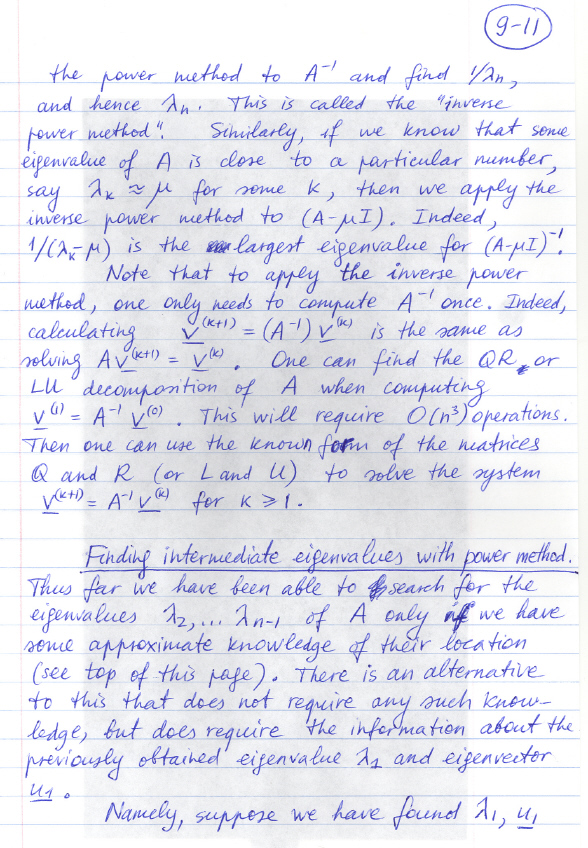 9-11
the power method to A⁻¹ and find 1/λₙ,
and hence λₙ. This is called the "inverse
power method". Similarly, if we know that some
eigenvalue of A is close to a particular number,
say λₖ ≈ μ for some k, then we apply the
inverse power method to (A-μI). Indeed,
1/(λₖ-μ) is the largest eigenvalue for (A-μI)⁻¹.
Note that to apply the inverse power
method, one only needs to compute A⁻¹ once. Indeed,
calculating v̲⁽ᵏ⁺¹⁾ = (A⁻¹) v̲⁽ᵏ⁾ is the same as
solving A v̲⁽ᵏ⁺¹⁾ = v̲⁽ᵏ⁾. One can find the QR or
LU decomposition of A when computing
v̲⁽¹⁾ = A⁻¹ v̲⁽⁰⁾. This will require O(n³) operations.
Then one can use the known form of the matrices
Q and R (or L and U) to solve the system
v̲⁽ᵏ⁺¹⁾ = A⁻¹ v̲⁽ᵏ⁾ for k ≥ 1.
Finding intermediate eigenvalues with power method.
Thus far we have been able to search for the
eigenvalues λ₂,... λₙ₋₁ of A only if we have
some approximate knowledge of their location
(see top of this page). There is an alternative
to this that does not require any such know-
ledge, but does require the information about the
previously obtained eigenvalue λ₁ and eigenvector
u̲₁.
Namely, suppose we have found λ₁, u̲₁